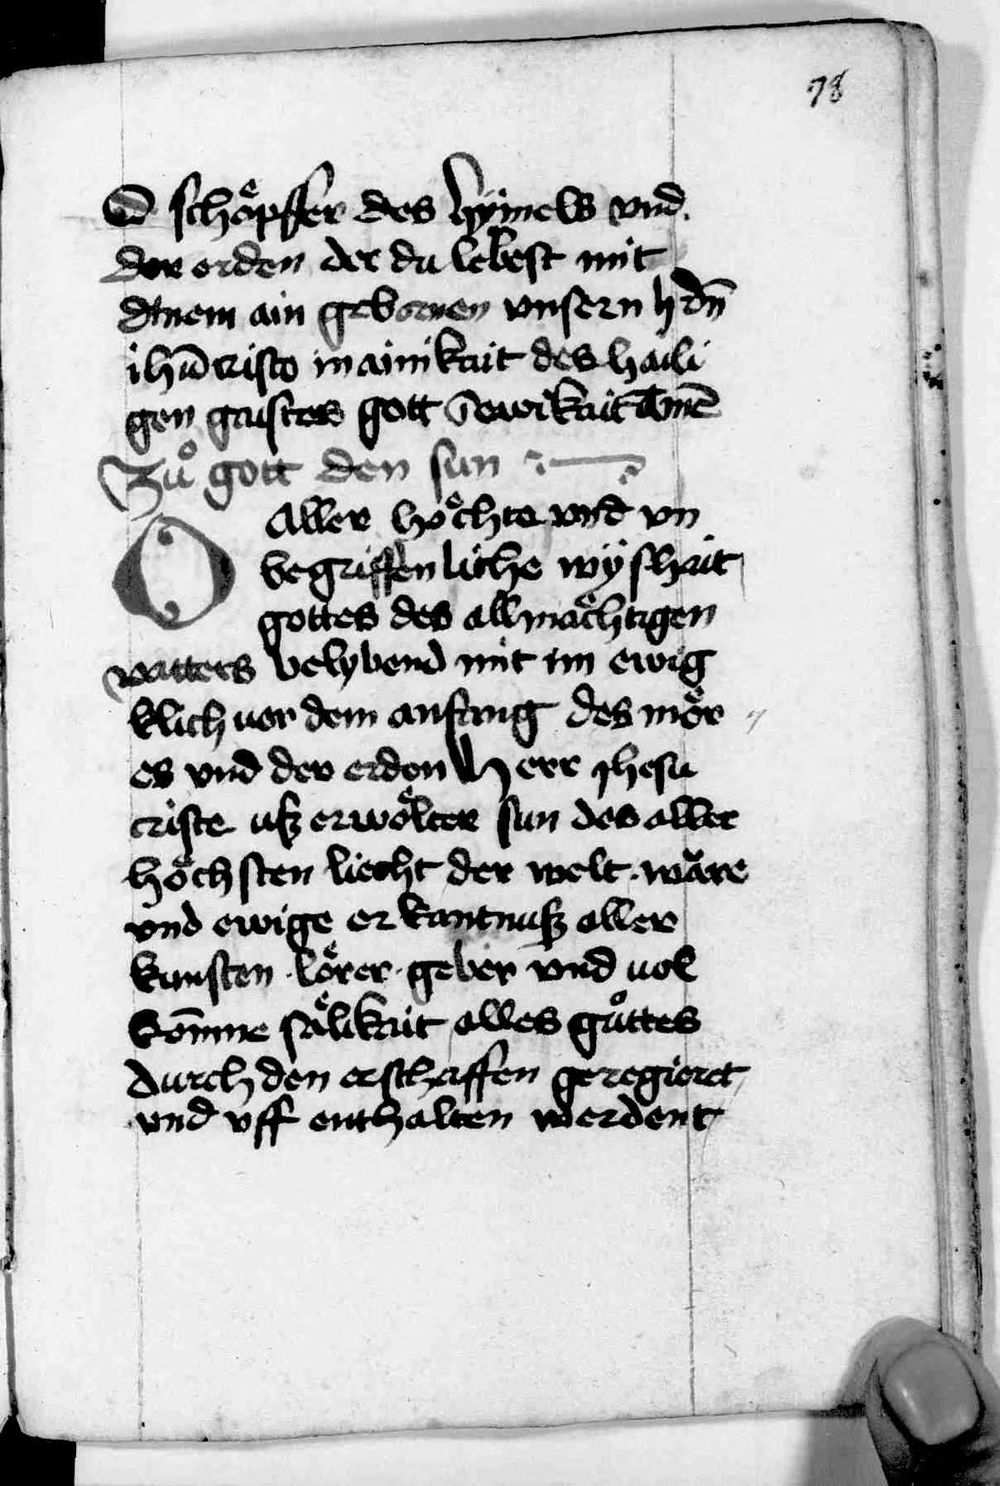 78
O schoͤpffer des hÿmels vnd
der erden der du lebest mit
dinem ain gebornen vnsern h̄rn̄
ihū cristo in ainikait des haili
gen gaistes gott In ewikait Amē
Zuͦ gott den sun
O Aller hoͤchte vnd vn
begriffenliche wÿshait
gottes des allmaͤchtigen
vatters belybend mit im ewig
klich vor dem anfang des moͤr
es vnd der erden Herr Jhesu
criste uß erwoͤlter sun des aller
hoͤchsten liecht der welt · wäre
vnd ewige erkantnuß aller
kunsten · loͤrer · geber vnd uol
kom̄ne saͤlikait alles guͦttes
durch den erschaffen geregieret
vnd vff enthalten werdent